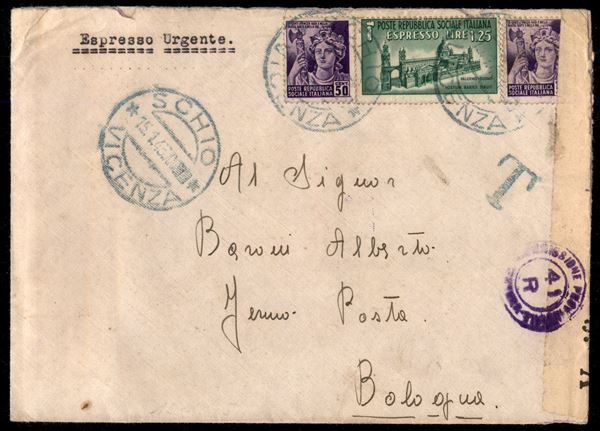 Espresso Urgente.
POSTE REPUBBLICA SOCIALE ITALIANA
ESPRESSO LIRE 1,25
PALERMO-DUOMO
HOSTIUM RABIES DIRUIT
CENT 50
POSTE REPUBBLICA
SOCIALE ITALIANA
POSTE REPUBBLICA
SOCIALE ITALIANA
* SCHIO *
VICENZA
T
Al Signor
Baroni Alberto.
Fermo Posta.
Bologna.
41
R